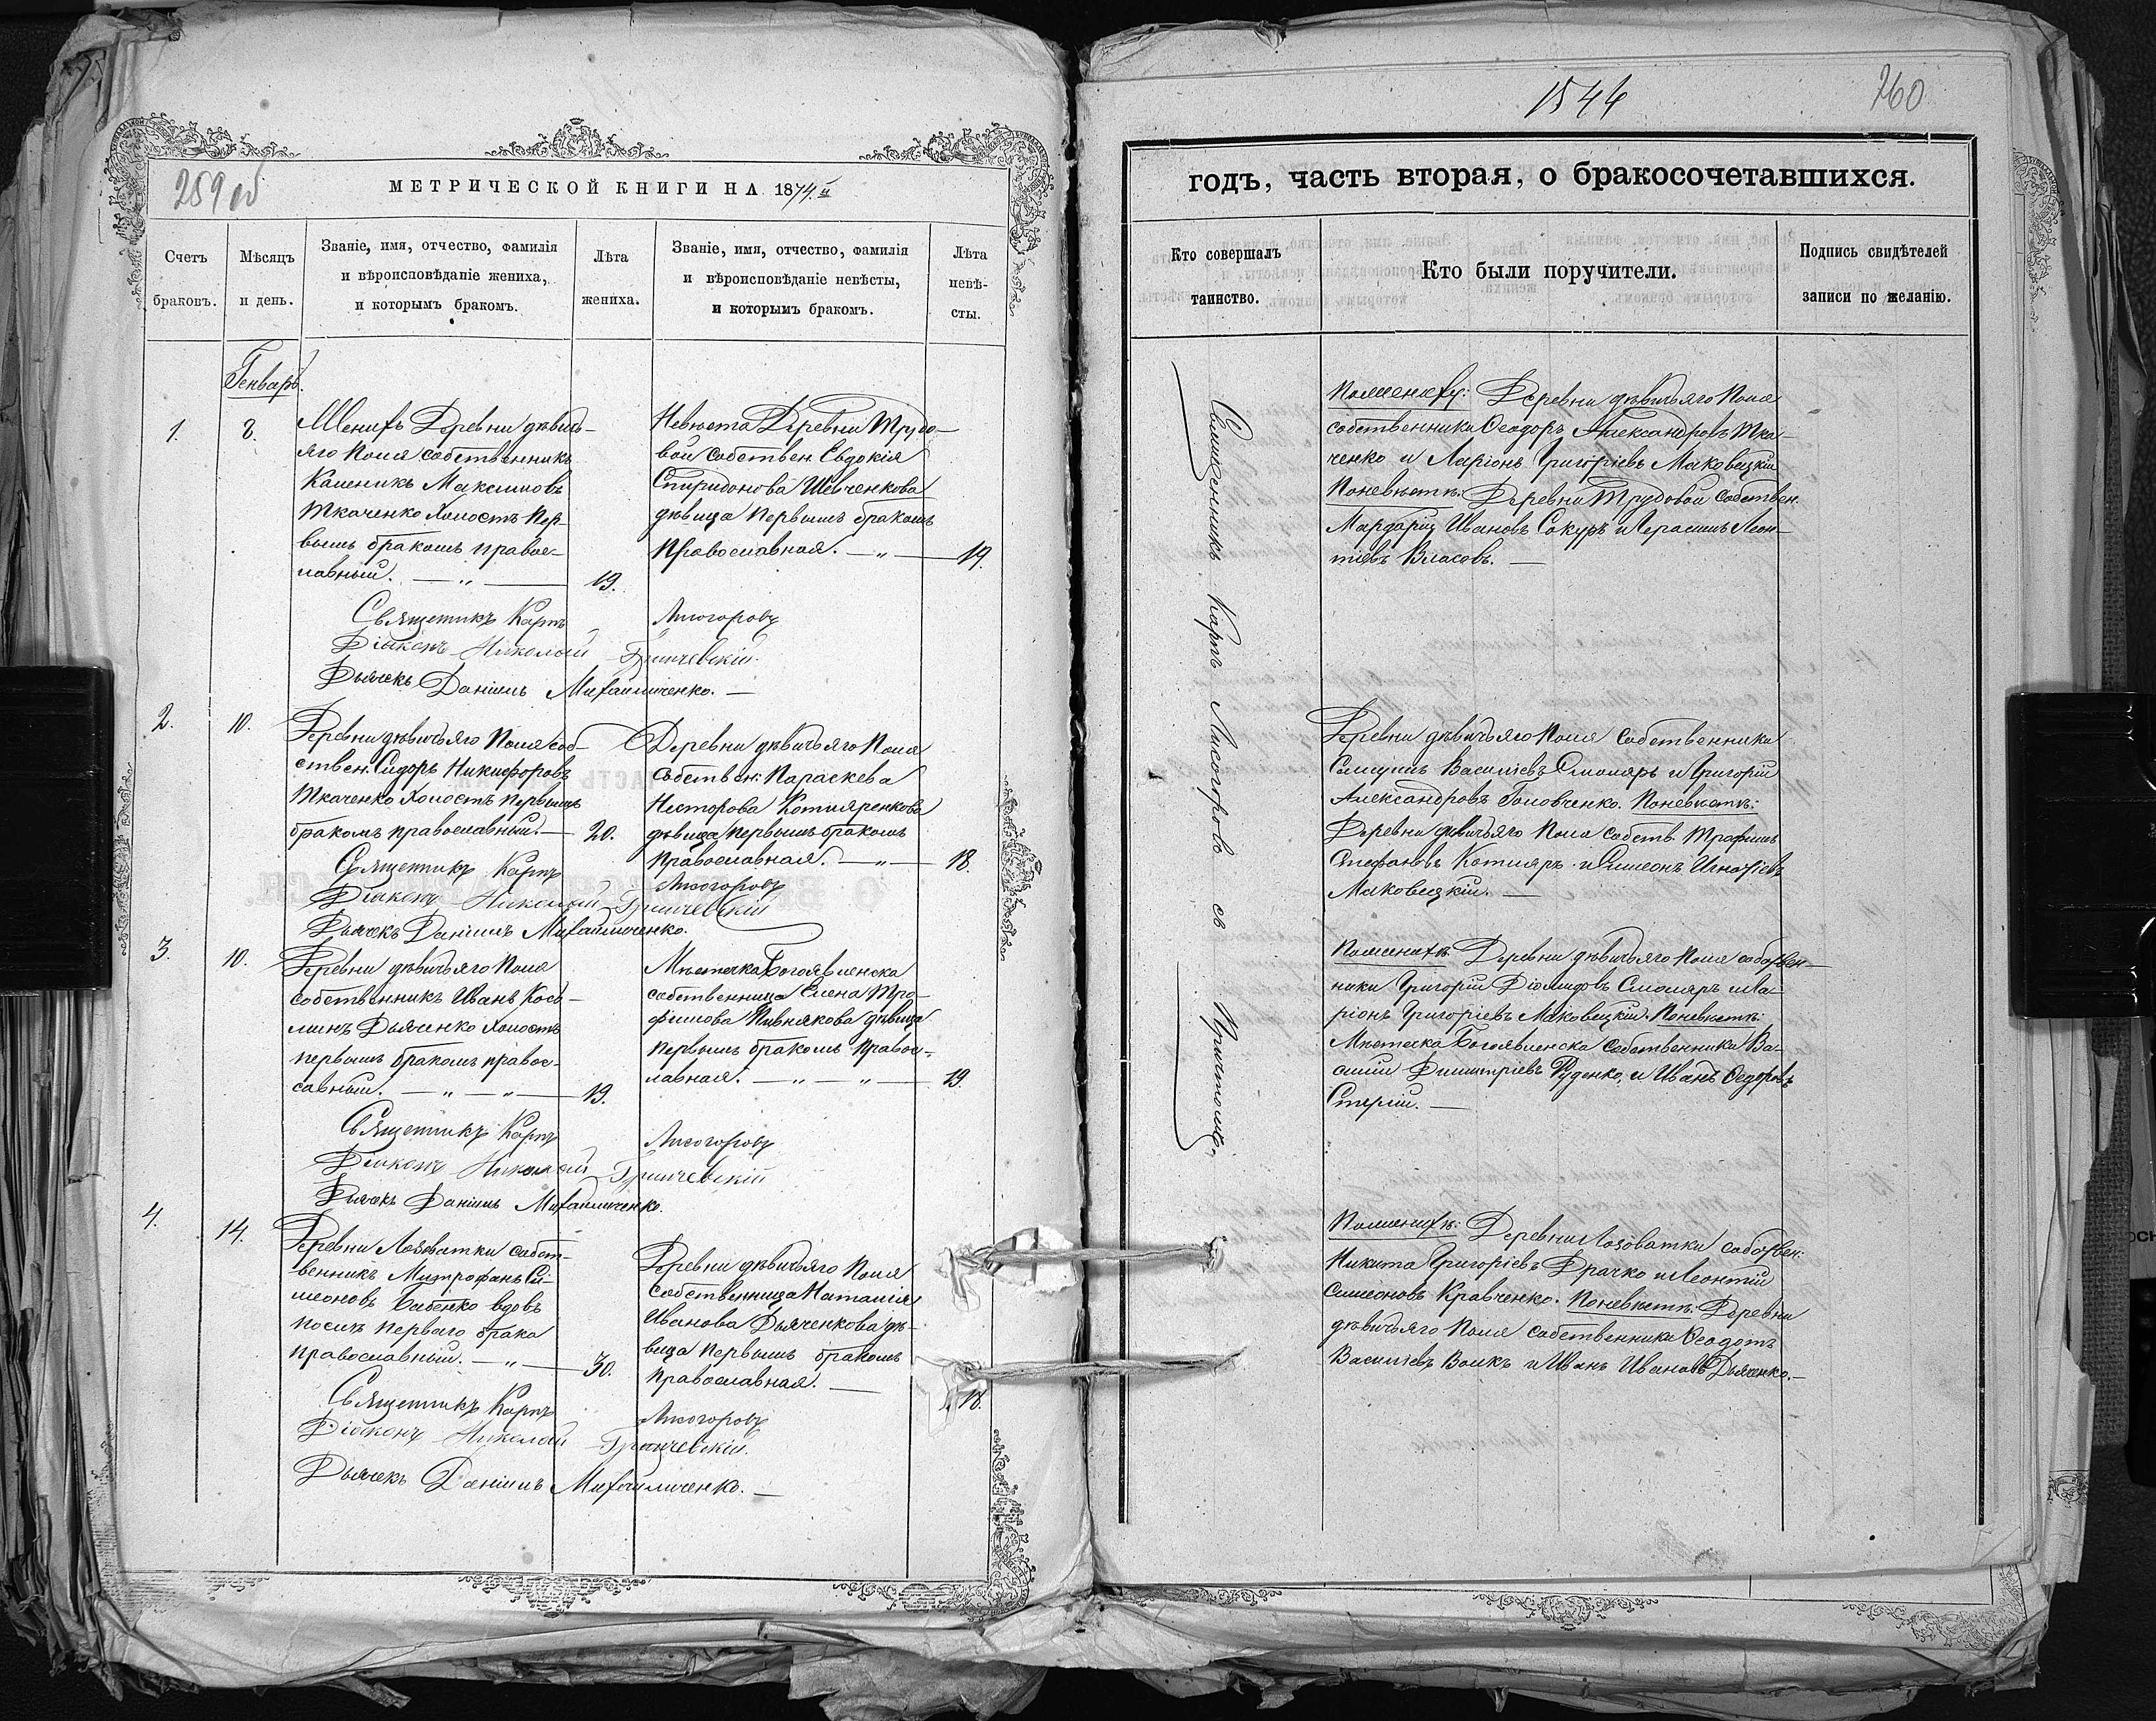 259 об
МЕТРИЧЕСКОЙ КНИГИ НА 1874.й
Счетъ
браковъ.
Мѣсяцъ
и день.
Званіе, имя, отчество, фамилія
и вѣроисповѣданіе жениха,
и которымъ бракомъ.
Лѣта
жениха.
Званіе, имя, отчество, фамилія
и вѣроисповѣданіе невѣсты,
и которымъ бракомъ.
Лѣта
невѣ-
сты.
Генварь.
1.
8.
Женихъ Деревни дѣвичь-
яго Поля собственникъ
Каленикъ Максимовъ
Ткаченко Холостъ Пер-
вымъ бракомъ правос-
лавный. — „ — 19.
Невѣста Деревни Трудо-
вой Собствен. Евдокія
Спиридонова Шевченкова
дѣвица Первымъ бракомъ
Православная. — „ — 19.
Священникъ Карпъ Лисогоровъ
Діаконъ Николай Гринчевскій.
Дьячекъ Даніилъ Михайличенко. —
2.
10.
Деревни дѣвичьяго Поля соб-
ствен. Сидоръ Никифоровъ
Ткаченко Холостъ первымъ
бракомъ православный. — 20.
Деревни дѣвичьяго Поля
Собствен: Параскева
Несторова Котляренкова
дѣвица первымъ бракомъ
православная. — „ — 18.
Священникъ Карпъ Лисогоровъ
Діаконъ Николай Гринчевскій
Дьячекъ Даніилъ Михайличенко.
3.
10.
Деревни дѣвичьяго Поля
собственникъ Иванъ Кось-
минъ Дьяченко Холостъ
первымъ бракомъ правос-
лавный. — „ — „ — 19.
Мѣстечка Богоявленска
собственница Елена Тро-
фимова Пивнякова дѣвица
первымъ бракомъ правос-
лавная. — „ — „ — 19.
Священникъ Карпъ Лисогоровъ
Діаконъ Николай Гринчевскій
Дьячекъ Даніилъ Михайличенко.
4.
14.
Деревни Лозоватки собст-
венникъ Митрофанъ Си-
меоновъ Бабенко вдовъ
послѣ перваго брака
православный. — „ — 30.
Деревни дѣвичьяго Поля
Собственница Наталія
Иванова Дьяченкова дѣ-
вица первымъ бракомъ
православная. —
18.
Священникъ Карпъ Лисогоровъ
Діаконъ Николай Гринчевскій.
Дьячекъ Даніилъ Михайличенко. —
1544
260
годъ, часть вторая, о бракосочетавшихся.
Кто совершалъ
таинство.
Кто были поручители.
Подпись свидѣтелей
записи по желанію.
Священникъ Карпъ Лисогоровъ съ Причтомъ,
По женихѣ: Деревни дѣвичьяго Поля
собственники Ѳеодоръ Александровъ Тка-
ченко и Ларіонъ Григоріевъ Маковецкій
По невѣстѣ: Деревни Трудовой Собствен.
Мардарій Ивановъ Сокуръ и Герасимъ Леон-
тіевъ Власовъ. —
Деревни дѣвичьяго Поля Собственники
Самуилъ Василіевъ Смоляръ и Григорій
Александровъ Головченко. По невѣстѣ:
Деревни дѣвичьяго Поля Собств. Трофимъ
Стефановъ Котляръ и Симеонъ Игнатіевъ
Маковецкій. —
По женихѣ Деревни дѣвичьяго Поля собствен-
ники Григорій Діомидовъ Смоляръ и Ла-
ріонъ Григоріевъ Маковецкій. По невѣстѣ:
Мѣстечка Богоявленска Собственники Ва-
силій Димитріевъ Руденко, и Иванъ Ѳедоровъ
По женихѣ: Деревни Лозоватки собствен:
Никита Григоріевъ Драчко и Леонтій
Симеоновъ Кравченко. По невѣстѣ: Деревни
дѣвичьяго Поля собственники Ѳеодотъ
Василіевъ Волкъ и Иванъ Ивановъ Дьяченко. —